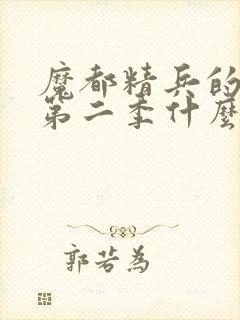 魔都精兵的
第二季什麼
郭若為